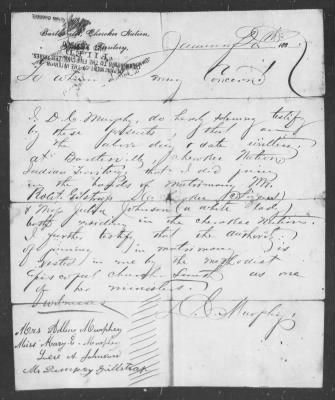 Bartlesville, Cherokee Nation,
Territory,
January
To whom it may concern
I D. C. Murphy, do hereby certify
by these presents that I on
the above day & date written
at Bartlesville Cherokee Nation
Indian Territory that I did join
in the bonds of matrimony Mr.
Robt. Gilstrap
& Miss Julia Johnson (a white lady
both residing in the Cherokee Nation.
I further certify that the authority
of joining in matrimony is
vested in me by the Methodist
Episcopal Church South as one
of her ministers.
Witness D. C. Murphy
Mrs Adline Murphy
Miss Mary E. Murphy
A Johnson
Mr Dempsey Gilstrap